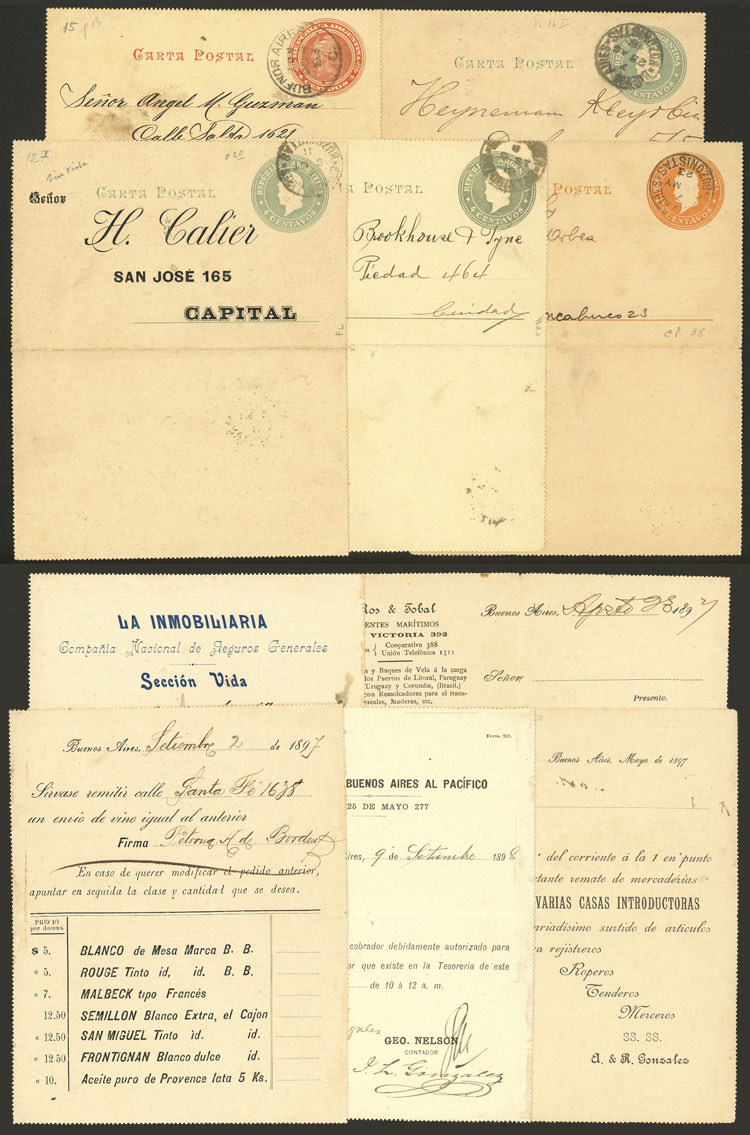 15 pB
CARTA POSTAL
REPUBLICA ARGENTINA
CENTAVOS
BUENOS AIRES
Señor Angel M. Guzman
Calle Salta 1621
CARTA POSTAL
CENTAVOS
Heyneman
12 I
Señor
CARTA POSTAL
4 CENTAVOS
H. Calier
SAN JOSÉ 165
CAPITAL
POSTAL
4 CENTAVOS
Brookhouse & Pyne
Piedad 464
Ciudad
POSTAL
CENTAVOS
BUZONISTAS
23
MY
Orbea
23
CP. 38
LA INMOBILIARIA
Compañia Nacional de Seguros Generales
Sección Vida
Ros & Tobal
ENTES MARÍTIMOS
VICTORIA 392
Cooperativa 388
Unión Telefónica 1511
s y Buques de Vela á la carga
los Puertos de Litoral, Paraguay
Uruguay y Corumba, (Brazil.)
con Remolcadores para el trans-
ereales, Maderas, etc.
Buenos Aires, Agosto 23 1897
Señor
Presente.
Buenos Aires, Setiembre 2 de 1897
Sirvase remitir calle Santa Fé 1638
un envio de vino igual al anterior
Firma Petrona A de
En caso de querer modificar el pedido anterior,
apuntar en seguida la clase y cantidad que se desea.
PRECIO
por docena
$ 5. BLANCO de Mesa Marca B. B.
« 5. ROUGE Tinto id, id. B. B.
« 7. MALBECK tipo Francés
12.50 SEMILLON Blanco Extra, el Cajon
« 12.50 SAN MIGUEL Tinto id. id.
« 12 50 FRONTIGNAN Blanco dulce id.
« 10. Aceite puro de Provence lata 5 Ks.
BUENOS AIRES AL PACÍFICO
25 DE MAYO 277
ires, 9 de Setiembre 1898
cobrador debidamente autorizado para
or que existe en la Tesoreria de este
de 10 á 12 a. m.
GEO. NELSON
CONTADOR
J. L. Gonzalez
Buenos Aires, Mayo de 1897
del corriente á la 1 en punto
rtante remate de mercaderias
VARIAS CASAS INTRODUCTORAS
ariadisimo surtido de articulos
a rejistreros
Roperos
Tenderos
Merceros
SS. SS.
A. & R. Gonzalez